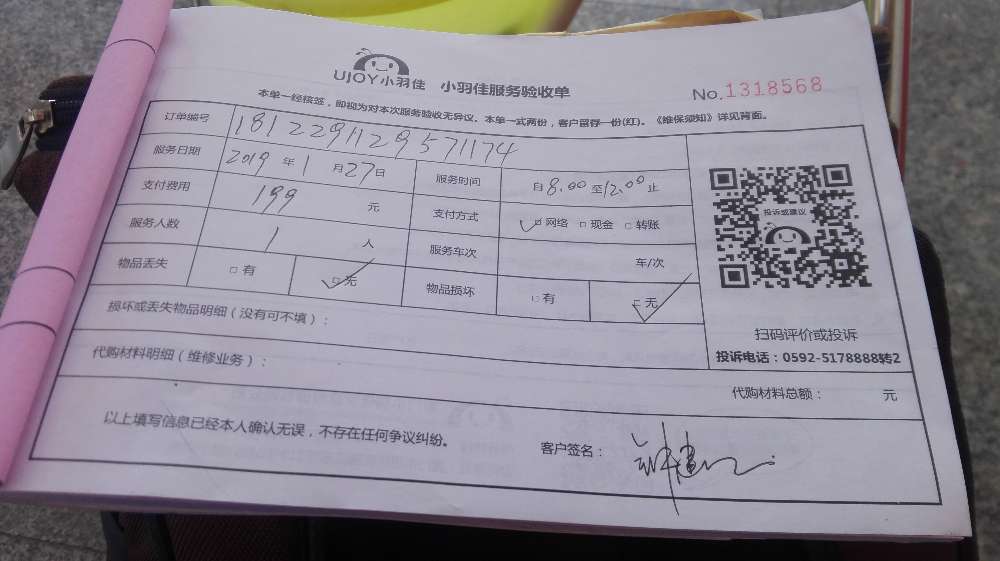 UJOY小羽佳 小羽佳服务验收单
No.1318568
本单一经核签，即视为对本次服务验收无异议。本单一式两份，客户留存一份(红)。《维保须知》详见背面。
订单编号 1812291129571174
服务日期 2019 年 1 月 27 日 服务时间 自 8.00 至 12.00 止
支付费用 199 元 支付方式 ☑ 网络 □ 现金 □ 转账
服务人数 1 人 服务车次 车/次
物品丢失 □ 有 ☑ 无 物品损坏 □ 有 ☑ 无
投诉或建议
扫码评价或投诉
投诉电话：0592-5178888转2
损坏或丢失物品明细（没有可不填）：
代购材料明细（维修业务）：
代购材料总额： 元
以上填写信息已经本人确认无误，不存在任何争议纠纷。
客户签名：